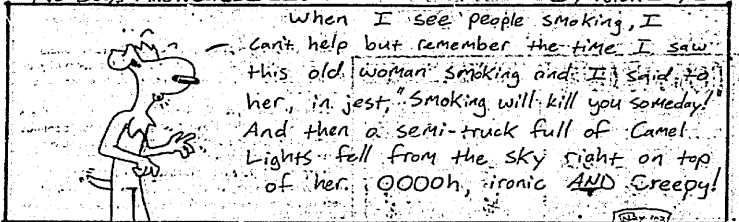 When I see people smoking, I
can't help but remember the time I saw
this old woman smoking and I said to
her, in jest, "Smoking will kill you someday!"
And then a semi-truck full of Camel
Lights fell from the sky right on top
of her. OOOOh, ironic AND Creepy!